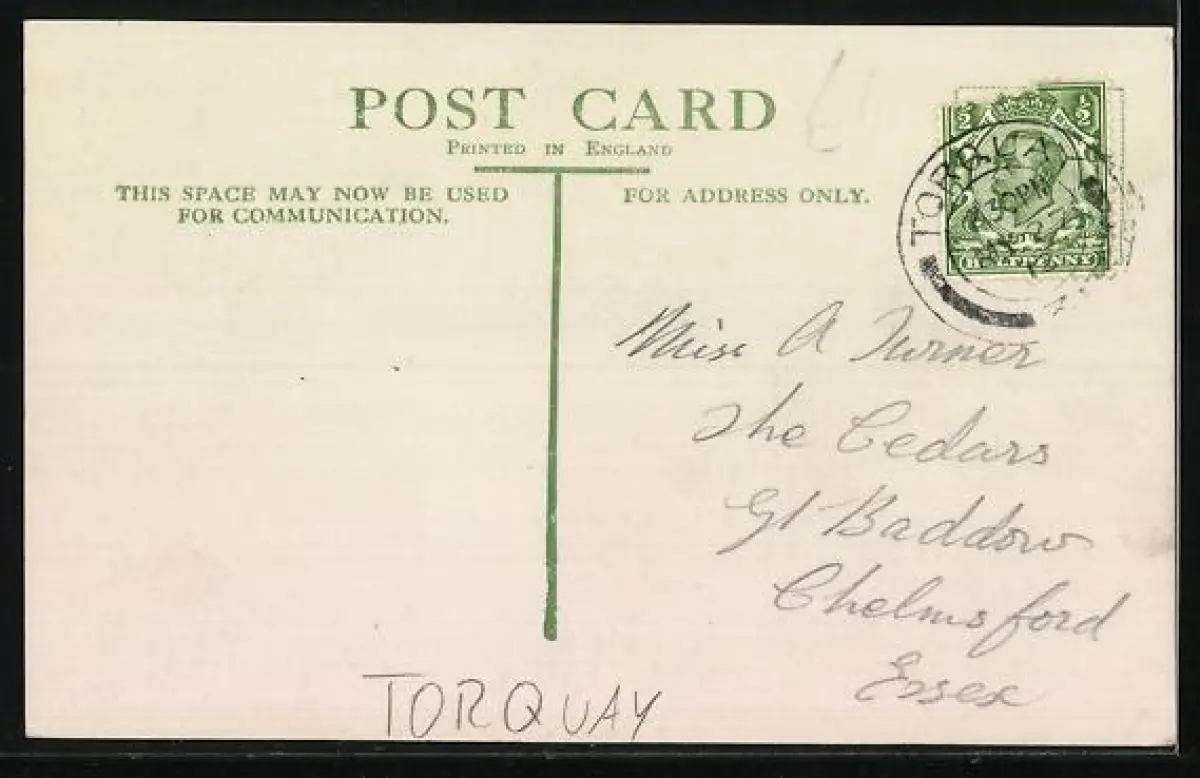 POST CARD
PRINTED IN ENGLAND
THIS SPACE MAY NOW BE USED
FOR COMMUNICATION.
FOR ADDRESS ONLY.
½ ½
TORQUAY
30 PM
HALFPENNY
Miss A Turner
The Cedars
Gt Baddow
Chelmsford
Essex
TORQUAY